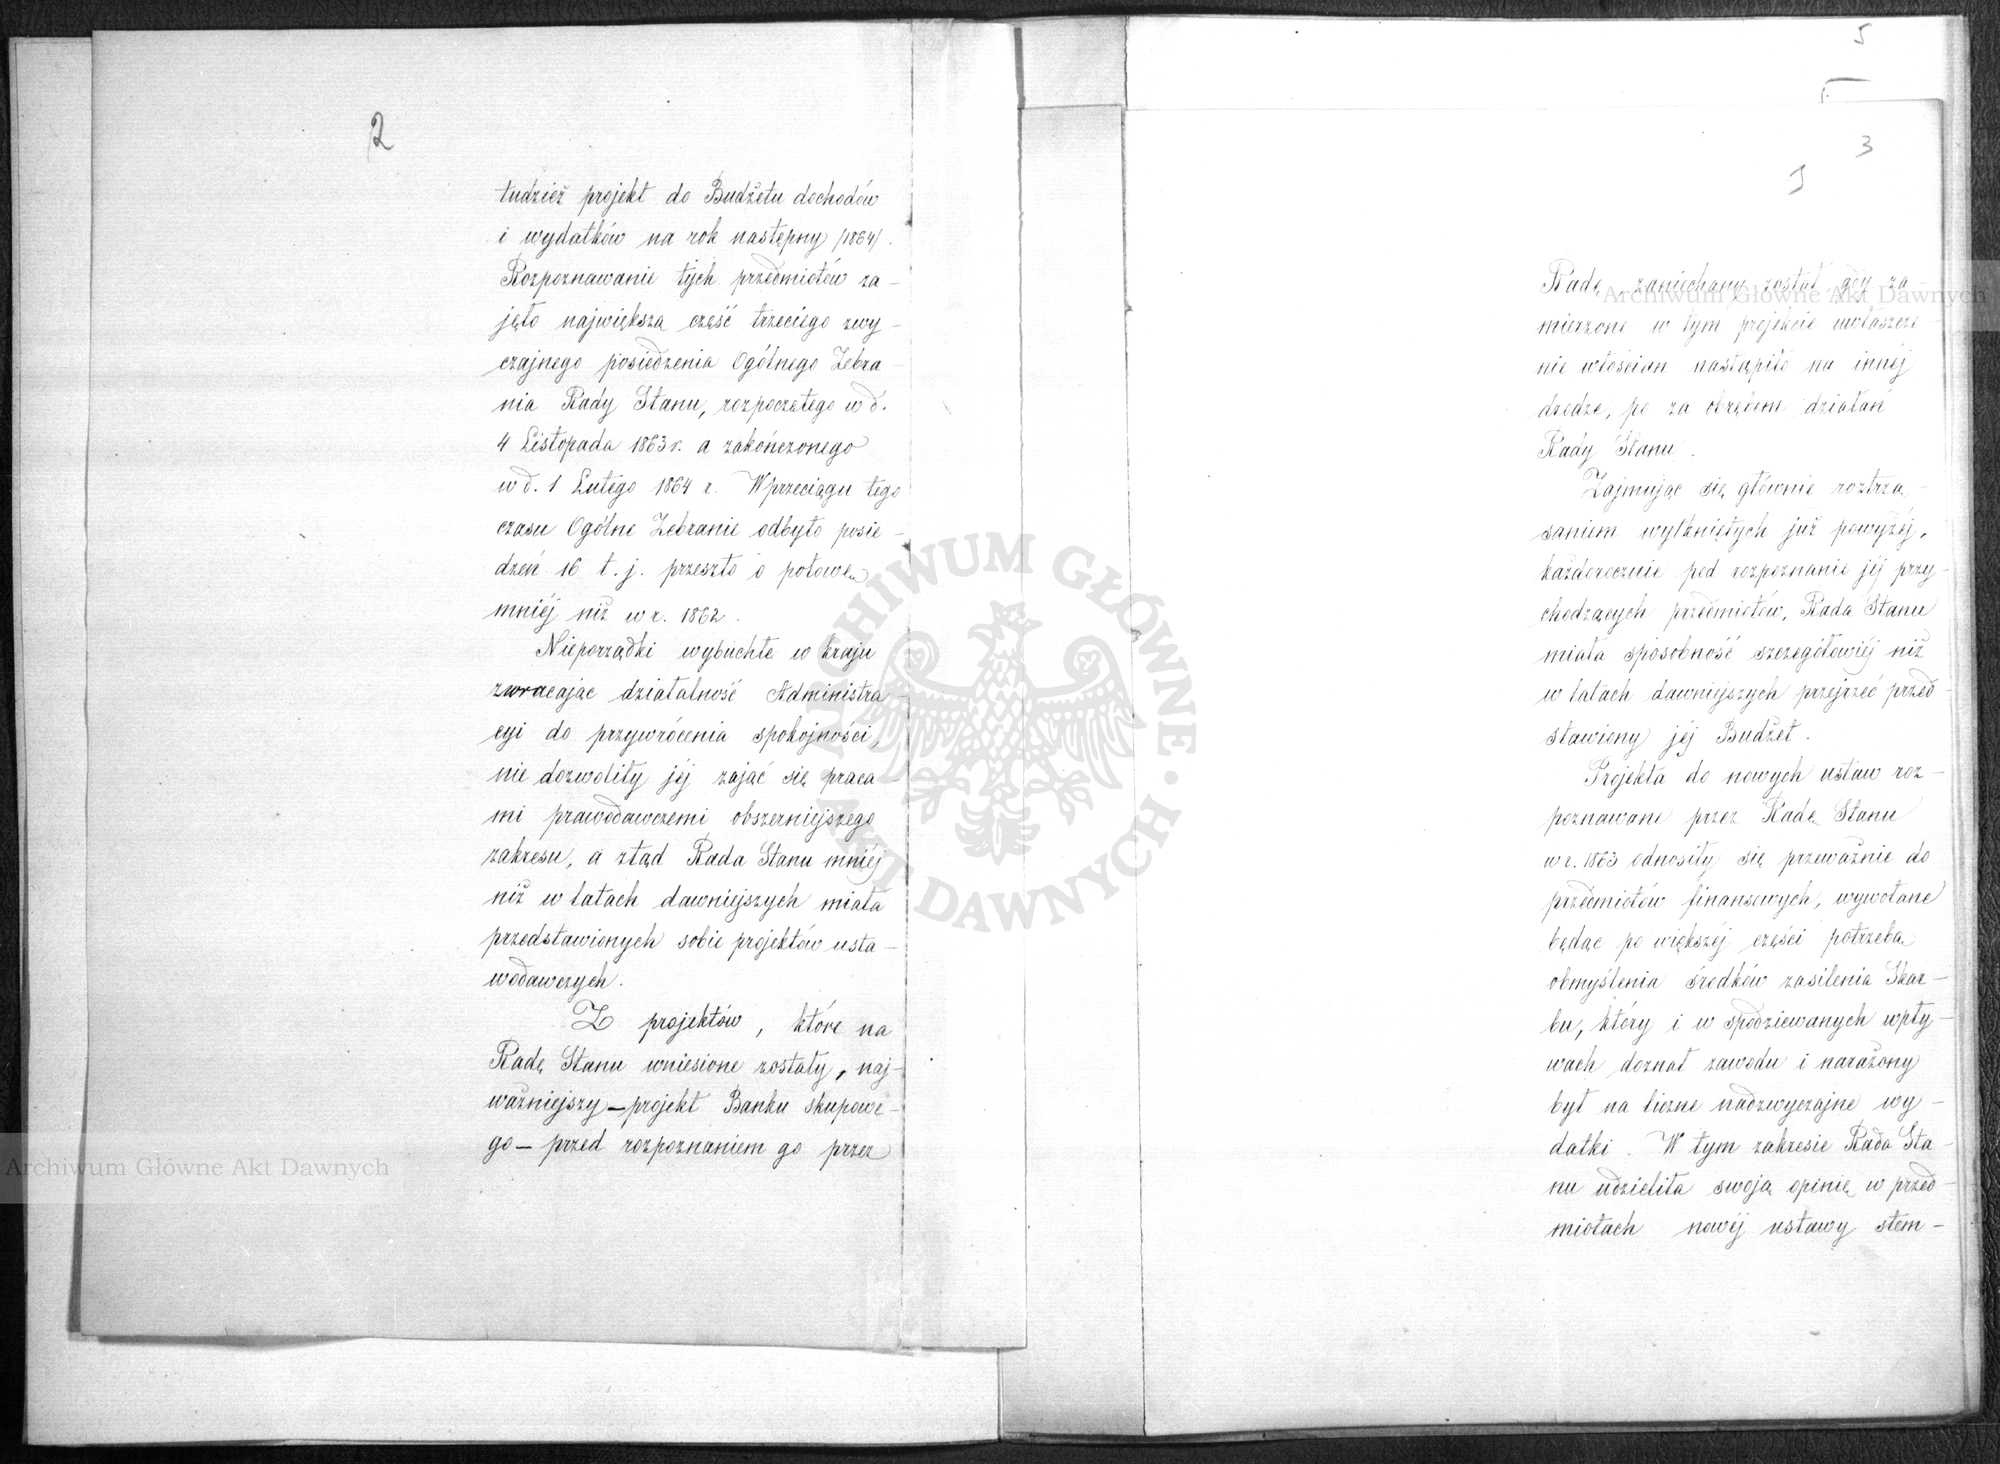 2
tudzież projekt do Budżetu dochodów
i wydatków na rok następny /1864/.
Rozpoznawanie tych przedmiotów za-
jęło największą część trzeciego zwy-
czajnego posiedzenia Ogólnego Zebra-
nia Rady Stanu, rozpoczętego w d.
4 Listopada 1863 r. a zakończonego
w d. 1 Lutego 1864 r. W przeciągu tego
czasu Ogólne Zebranie odbyło posie-
dzeń 16 t. j. przeszło o połowę
mniéj niż w r. 1862.
Nieporządki wybuchłe w kraju
zwracając działalność Administra-
cyi do przywrócenia spokojności,
nie dozwoliły jéj zająć się praca-
mi prawodawczemi obszerniejszego
zakresu, a ztąd Rada Stanu mniéj
niż w latach dawniejszych miała
przedstawionych sobie projektów usta-
wodawczych.
Z projektów, które na
Radę Stanu wniesione zostały, naj-
ważniejszy – projekt Banku skupowe-
go – przed rozpoznaniem go przez
5
3
Radę, zaniechany został, gdy za-
mierzone w tym projekcie uwłaszcze-
nie włościan nastąpiło na innéj
drodze, po za obrębem działań
Rady Stanu.
Zajmując się głównie roztrzą-
saniem wytkniętych już powyżéj,
każdorocznie pod rozpoznanie jéj przy-
chodzących przedmiotów, Rada Stanu
miała sposobność szczegółowiéj niż
w latach dawniejszych przejrzéć przed-
stawiony jéj Budżet.
Projekta do nowych ustaw roz-
poznawane przez Radę Stanu
w r. 1863 odnosiły się przeważnie do
przedmiotów finansowych, wywołane
będąc po większéj części potrzebą
obmyślenia środków zasilenia Skar-
bu, który i w spodziewanych wpły-
wach doznał zawodu i narażony
był na liczne nadzwyczajne wy-
datki. W tym zakresie Rada Sta-
nu udzieliła swoją opinię w przed-
miotach nowéj ustawy stem-
Archiwum Główne Akt Dawnych
Archiwum Główne Akt Dawnych
ARCHIWUM GŁÓWNE · AKT DAWNYCH ·